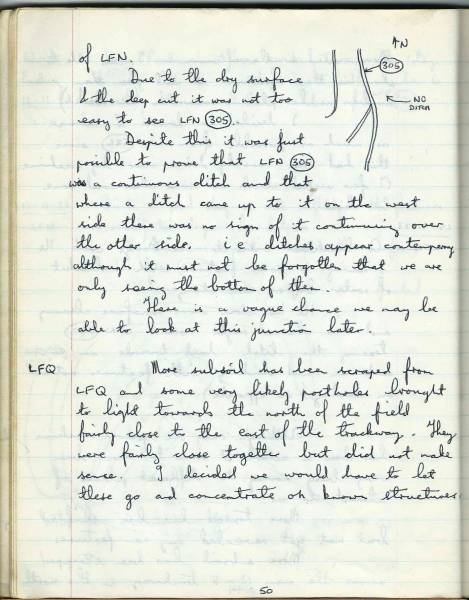 of LFN.
Due to the dry surface
& the deep cut it was not too
easy to see LFN 305.
Despite this it was just
possible to prove that LFN 305
was a continuous ditch and that
where a ditch came up to it on the west
side there was no sign of it continuing over
the other side. i e ditches appear contempory
although it must not be forgotten that we are
only seeing the bottom of them.
There is a vague chance we may be
able to look at this junction later.
↑N
305
← NO
DITCH
LFQ More subsoil has been scraped from
LFQ and some very likely postholes brought
to light towards the north of the field
fairly close to the east of the trackway. They
were fairly close together but did not make
sense. I decided we would have to let
these go and concentrate on known structures.
50